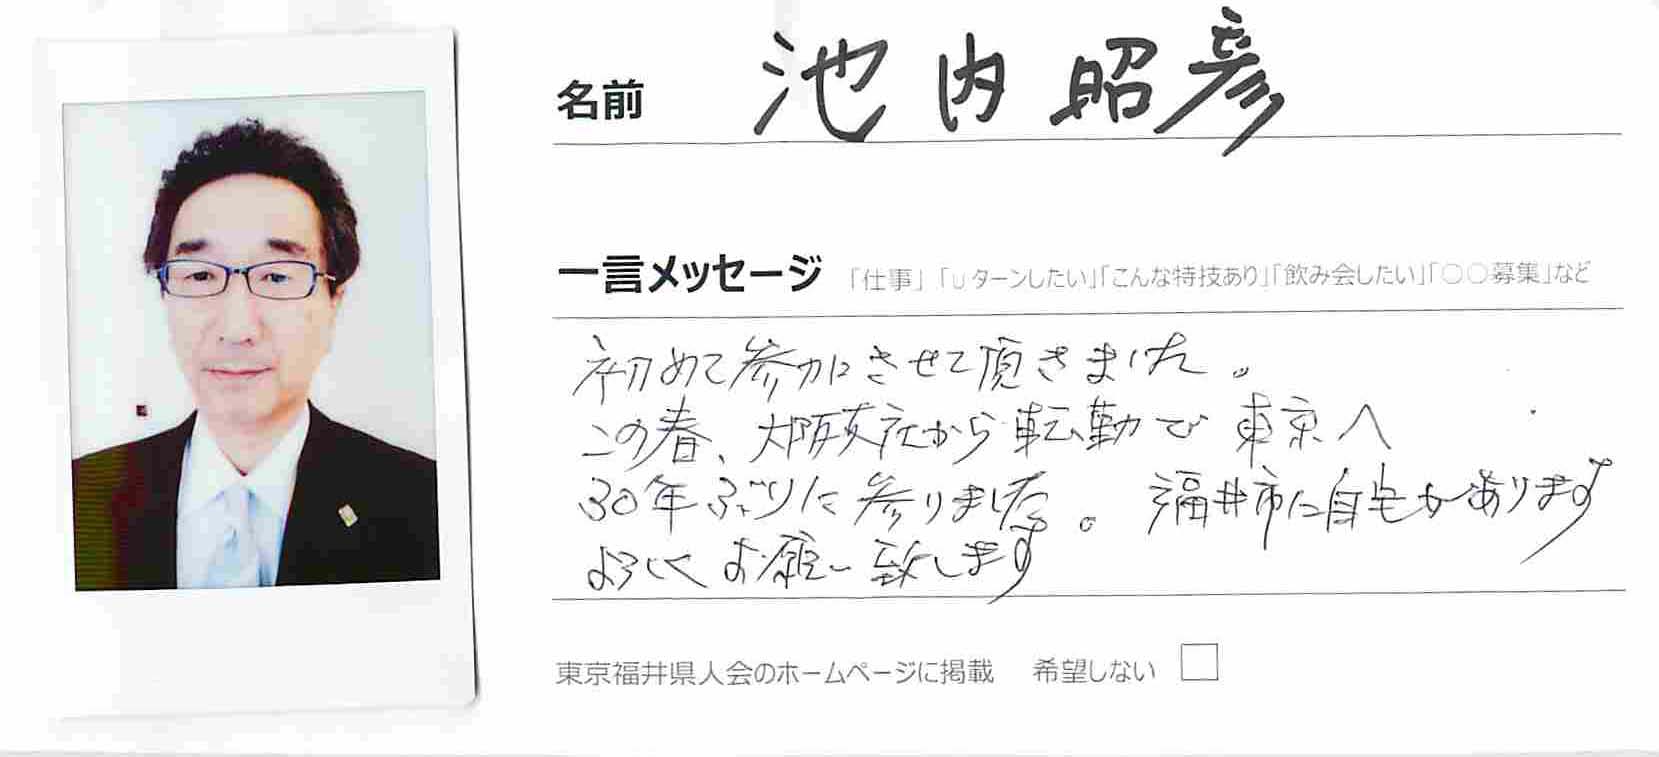 名前 池内昭彦
一言メッセージ 「仕事」「Uターンしたい」「こんな特技あり」「飲み会したい」「○○募集」など
初めて参加させて頂きました。
この春、大阪支社から転勤で東京へ
30年ぶりに参りました。福井市に自宅があります
よろしくお願い致します
東京福井県人会のホームページに掲載 希望しない □